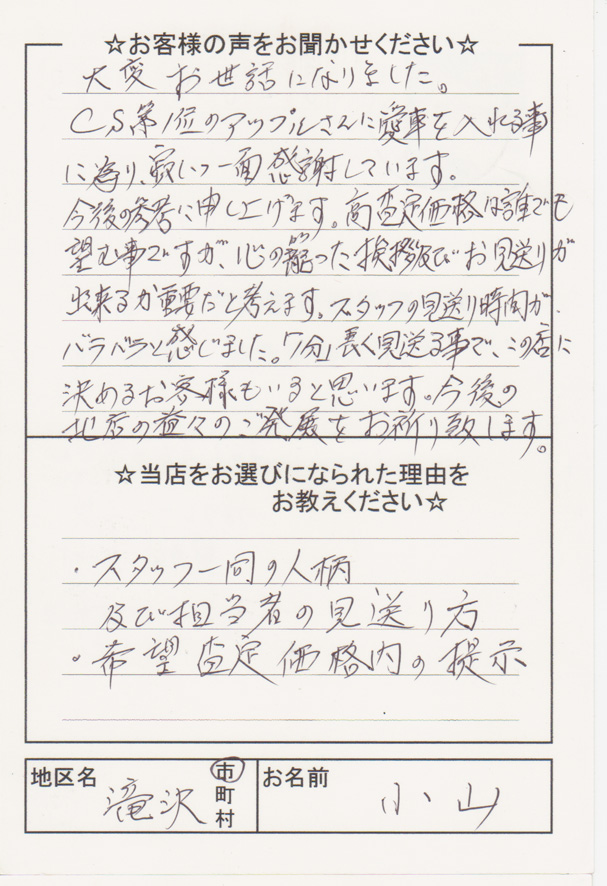 ☆お客様の声をお聞かせください☆
大変お世話になりました。
CS第1位のアップルさんに愛車を入れる事
に為り、寂しい一面感謝しています。
今後の参考に申し上げます。高査定価格は誰でも
望む事ですが、心の籠った挨拶及びお見送りが
出来るか重要だと考えます。スタッフの見送り時間が、
バラバラと感じました。「7分」長く見送る事で、この店に
決めるお客様もいると思います。今後の
の益々のご発展をお祈り致します。
☆当店をお選びになられた理由を
お教えください☆
・スタッフ一同の人柄
及び担当者の見送り方
・希望査定価格内の提示
地区名 滝沢 市
町
村
お名前 小山